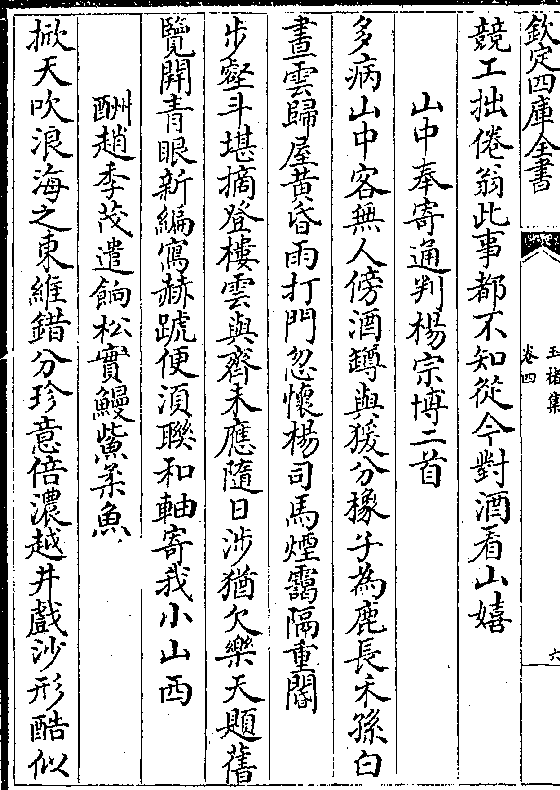 欽定四庫全書
玉楮集
卷四
六
競工拙倦翁此事都不知從今對酒看山嬉
山中奉寄通判楊宗博二首
多病山中客無人傍酒罇與猨分橡子為鹿長禾孫白
晝雲歸屋黄昏雨打門忽懷楊司馬煙靄隔重閽
步壑斗堪摘登樓雲與齊未應隨日涉猶欠樂天題舊
覽開青眼新編寫赫蹏便湏聯和軸寄我小山西
酬趙季茂遣餉松實鰻鮆柔魚
掀天吹浪海之東維錯分珍意倍濃越井戲沙形酷似